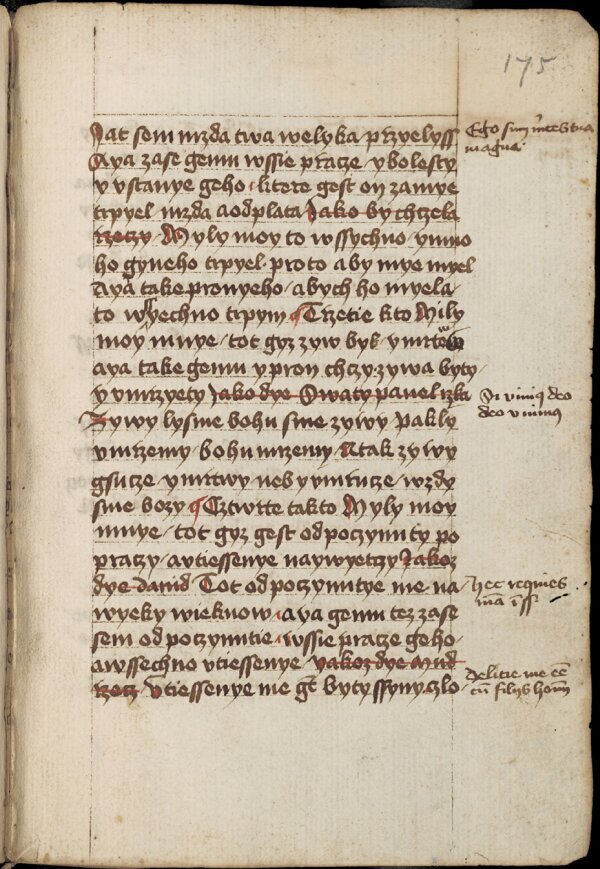 175
Jat sem mzda twa welyka przyelyss
Aya zase gemu wssie pracze / y bolesty
y vstanye geho / ktere gest on za mye
trpyel mzda a odplata Jako by chtzela
rzeczy Myly moy to wssychno / ynmo
ho gyneho trpyel proto aby mye myel
Aya take pro nyeho / abych ho myela
to wssyechno trpym Trzetie kto Mily
moy mnye / tot gyz zyw byl / y mrtew
aya take gemu y pron chczy zywa byty
y vmrzyety Jako dye Swaty pawel rzka
Zywy lysme bohu sme zywy Pakly
vmrzemy / bohu mrzemy / Atak zywy
gsucze y mrtwy neb y vmrucze / wzdy
sme bozy Cztwrte takto Myly moy
mnye / tot gyz gest odpoczynuty po
praczy / a vtiessenye naywyetczy Jakoz
dye dawid Tot odpoczynutye me na
wyeky wiekuow / aya gemu tez zase
sem odpoczynutie / wssie pracze geho
a wssechno vtiessenye yakoz dye mud
rzecz vtiessenye me gt byty s syny czlo
Ego sum merces tua
magna
Si vinimus deo
deo vinimus
hec requies
mea
delicie me esse
cum filijs hominum